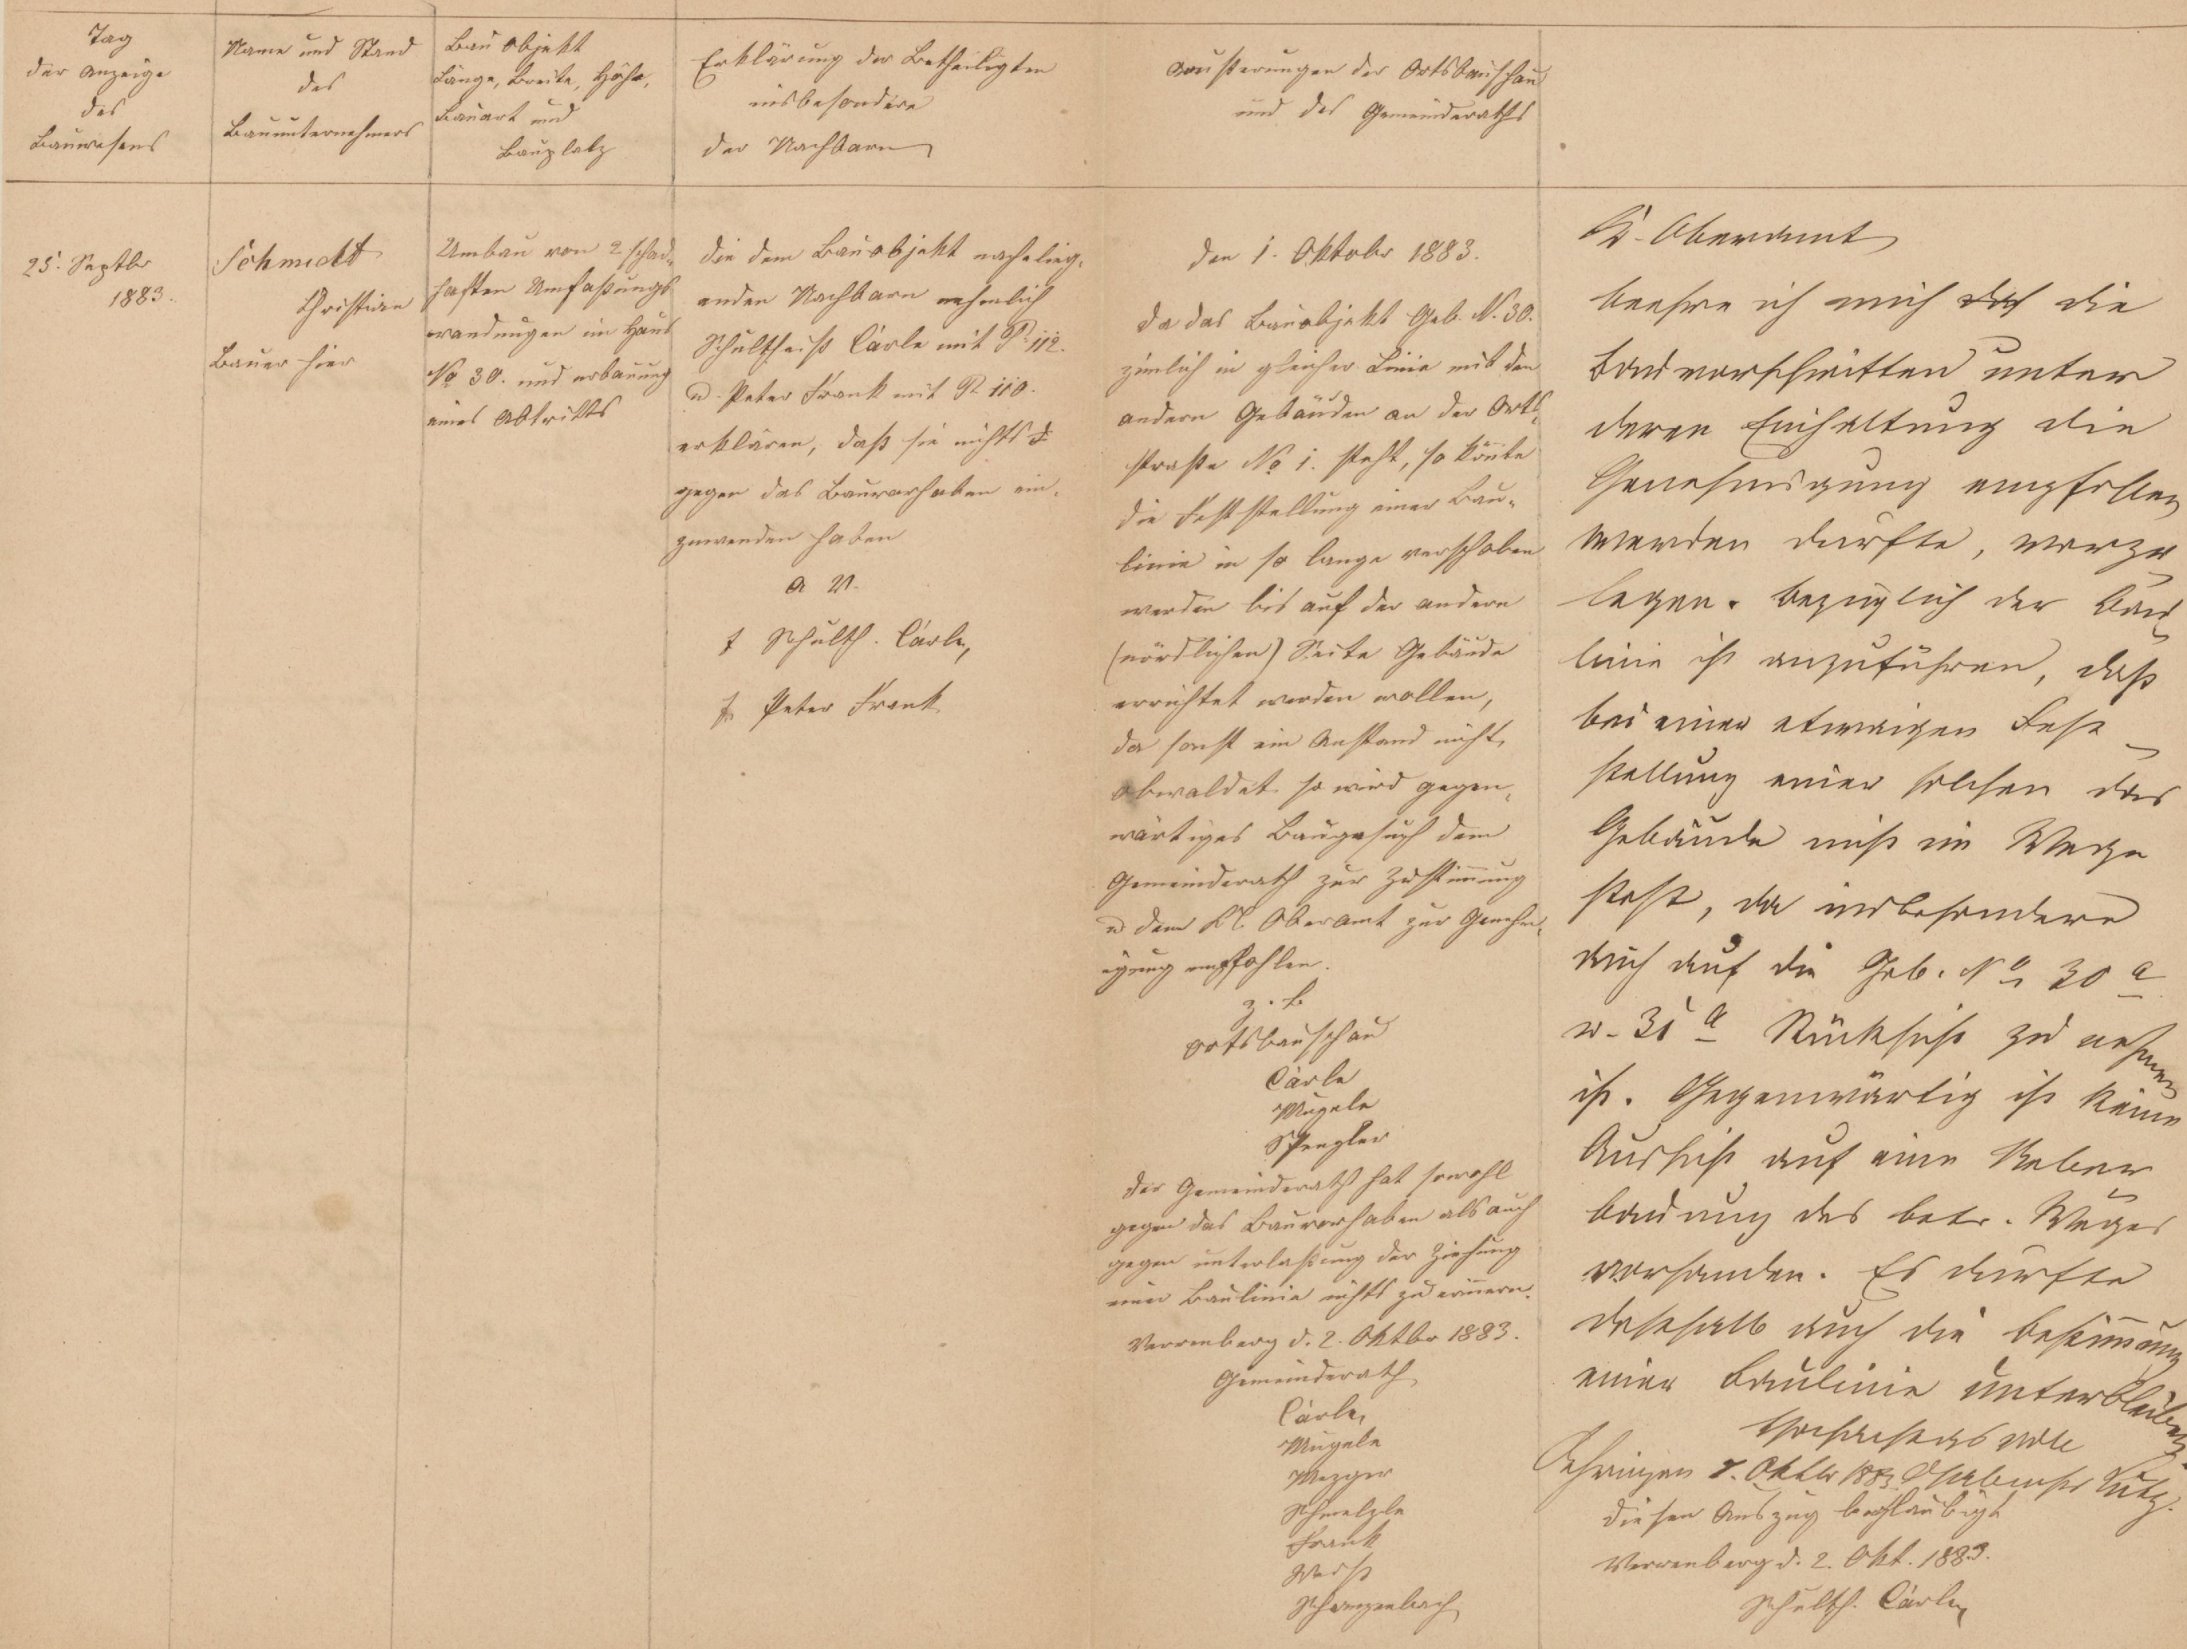 Tag
der Anzeige
des
Bauwesens
Name und Stand
des
Bauunternehmers
Bau Objekt
Länge, Breite, Höhe,
Bauart und
Bauplatz
Erklärung der Betheiligten
insbesondere
der Nachbarn
Äußerungen der Ortsbauschau
und des Gemeinderaths
25. Septbr
1883.
Schmidt
Christian
Bauer hier
Umbau von 2 schad-
haften Umfaßungs
wandungen im Haus
No 30. und erbauung
eines Abtritts
die dem Bauobjekt nachelieg-
enden Nachbarn nehmlich
Schultheiß Cärle mit P. 112.
u. Peter Frank mit P. 110.
erklären, daß sie nichts
gegen das Bauvorhaben ein-
zuwenden haben
a V.
t Schulth. Cärle,
t Peter Frank
den 1. Oktobr 1883.
Da das Bauobjekt Geb. N. 30.
zimlich in gleicher Linie mit den
andern Gebäuden an der Orts-
straße No 1. steht, so könte
die Feststellung einer Bau-
linie in so lange verschoben
werden bis auf der andern
(nördlichen) Seite Gebäude
errichtet werden wollen,
da sonst ein Anstand nicht
obwaldet so wird gegen-
wärtiges Baugesuch dem
Gemeinderath zur Zustimung
u dem Kl. Oberamt zur Genehm-
igung empfohlen.
z. B.
Ortsbauschau
Cärle
Mugele
Spengler
Der Gemeinderath hat sowohl
gegen das Bauvorhaben als auch
gegen unterlaßung der Ziehung
einer Baulinie nichts zu erinnern.
Verrenberg d. 2. Oktbr 1883.
Gemeinderath
Cärle,
Mugele
Mezger
Schmelzle
Frank
Weiß
Schwarzenbach
K. Oberamt
beehre ich mich die
Bauvorschriften unter
deren Einhaltung die
Genehmigung empfohlen
werden dürfte, vorzu
legen. Bezüglich der Bau
linie ist anzuführen, daß
bei einer etwaigen Fest
stellung einer solchen das
Gebäude nicht im Wege
steht, da insbesondere
auch auf die Geb. No 30 a
u. 31 a Rücksicht zu nehmen
ist. Gegenwärtig ist keine
Aussicht auf eine Ueber
bauung des betr. Weges
vorhanden. Es dürfte
deßhalb auch die Bestimung
einer Baulinie unterbleiben.
Hochachtungsvoll
Oehringen 7. Oktbr 1883
diesen Auszug beglaubigt
Verrenberg d. 2. Okt. 1883.
Schulth. Cärle,